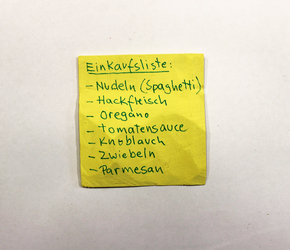 Einkaufsliste:
- Nudeln (Spaghetti)
- Hackfleisch
- Oregano
- Tomatensauce
- Knoblauch
- Zwiebeln
- Parmesan